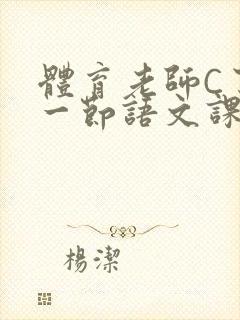 體育老師C
一節語文課
楊潔